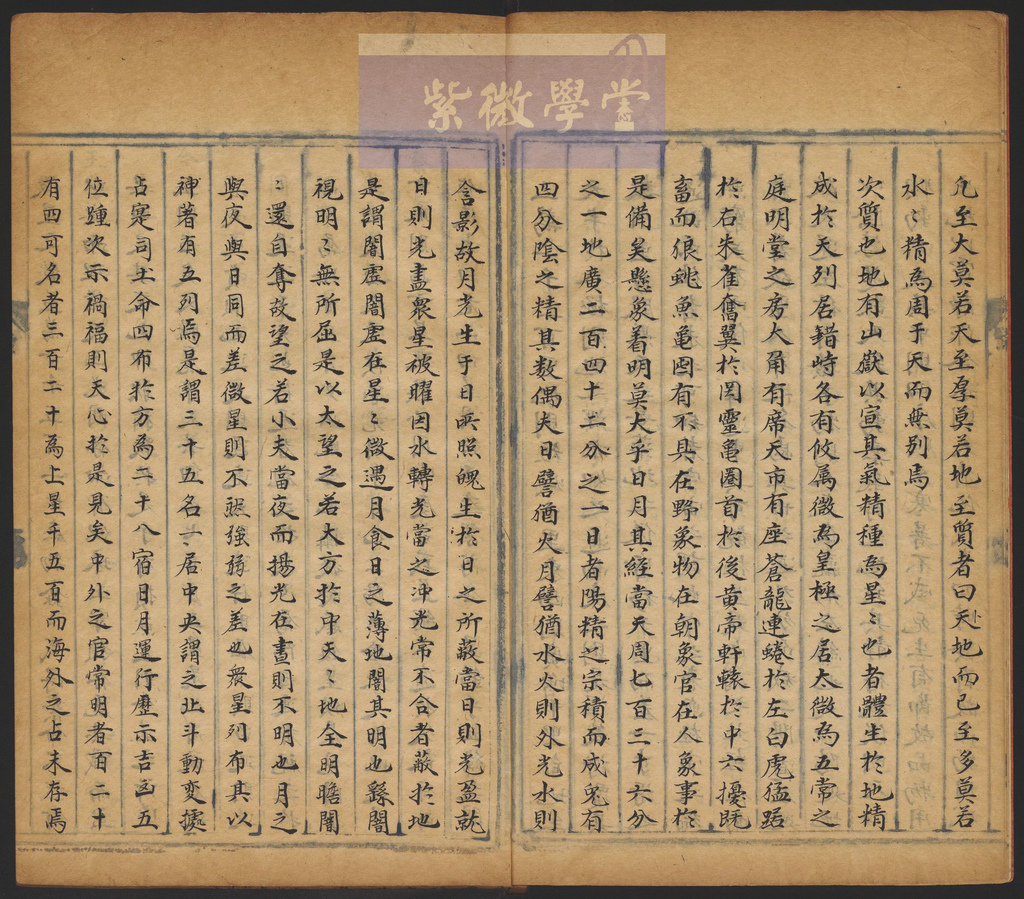 紫微學堂
凢至大莫若天至厚莫若地至質者曰天地而已至多莫若
水〻精為周于天而無别焉
次質也地有山嶽以宣其氣精種為星〻也者體生於地精
成於天列居錯峙各有攸属微為皇極之居太微為五常之
庭明堂之房大角有席天市有座蒼龍連蜷於左白虎猛踞
於右朱雀奮翼於前靈龜圈首於後黄帝軒轅於中六擾既
畜而狼蚍魚龜罔有不具在野象物在朝象官在人象事於
是備矣懸象着明莫大乎日月其經當天周七百三十六分
之一地廣二百四十二分之一日者陽精之宗積而成兎有
四分陰之精其数偶夫日譬猶火月譬猶水火則外光水則
含影故月光生于日所照魄生於日之所蔽當日則光盈就
日則光盡衆星被曜因水轉光當之冲光常不合者蔽於地
是謂闇虚闇虚在星〻微遇月食日之薄地闇其明也繇闇
視明〻無所屈是以太望之若大方於中天〻地全明瞻闇
〻還自奪故望之若小夫當夜而揚光在晝則不明也月之
與夜與日同而差微星則不㷖強弱之差也衆星列布其以
神著有五列焉是謂三十五名一居中央謂之北斗動变㨿
占寔司王命四布扵方為二十八宿日月運行歷示吉凶五
位躔次示禍福則天心扵是見矣中外之官常明者百二十
有四可名者三百二十為上星千五百而海外之占未存焉